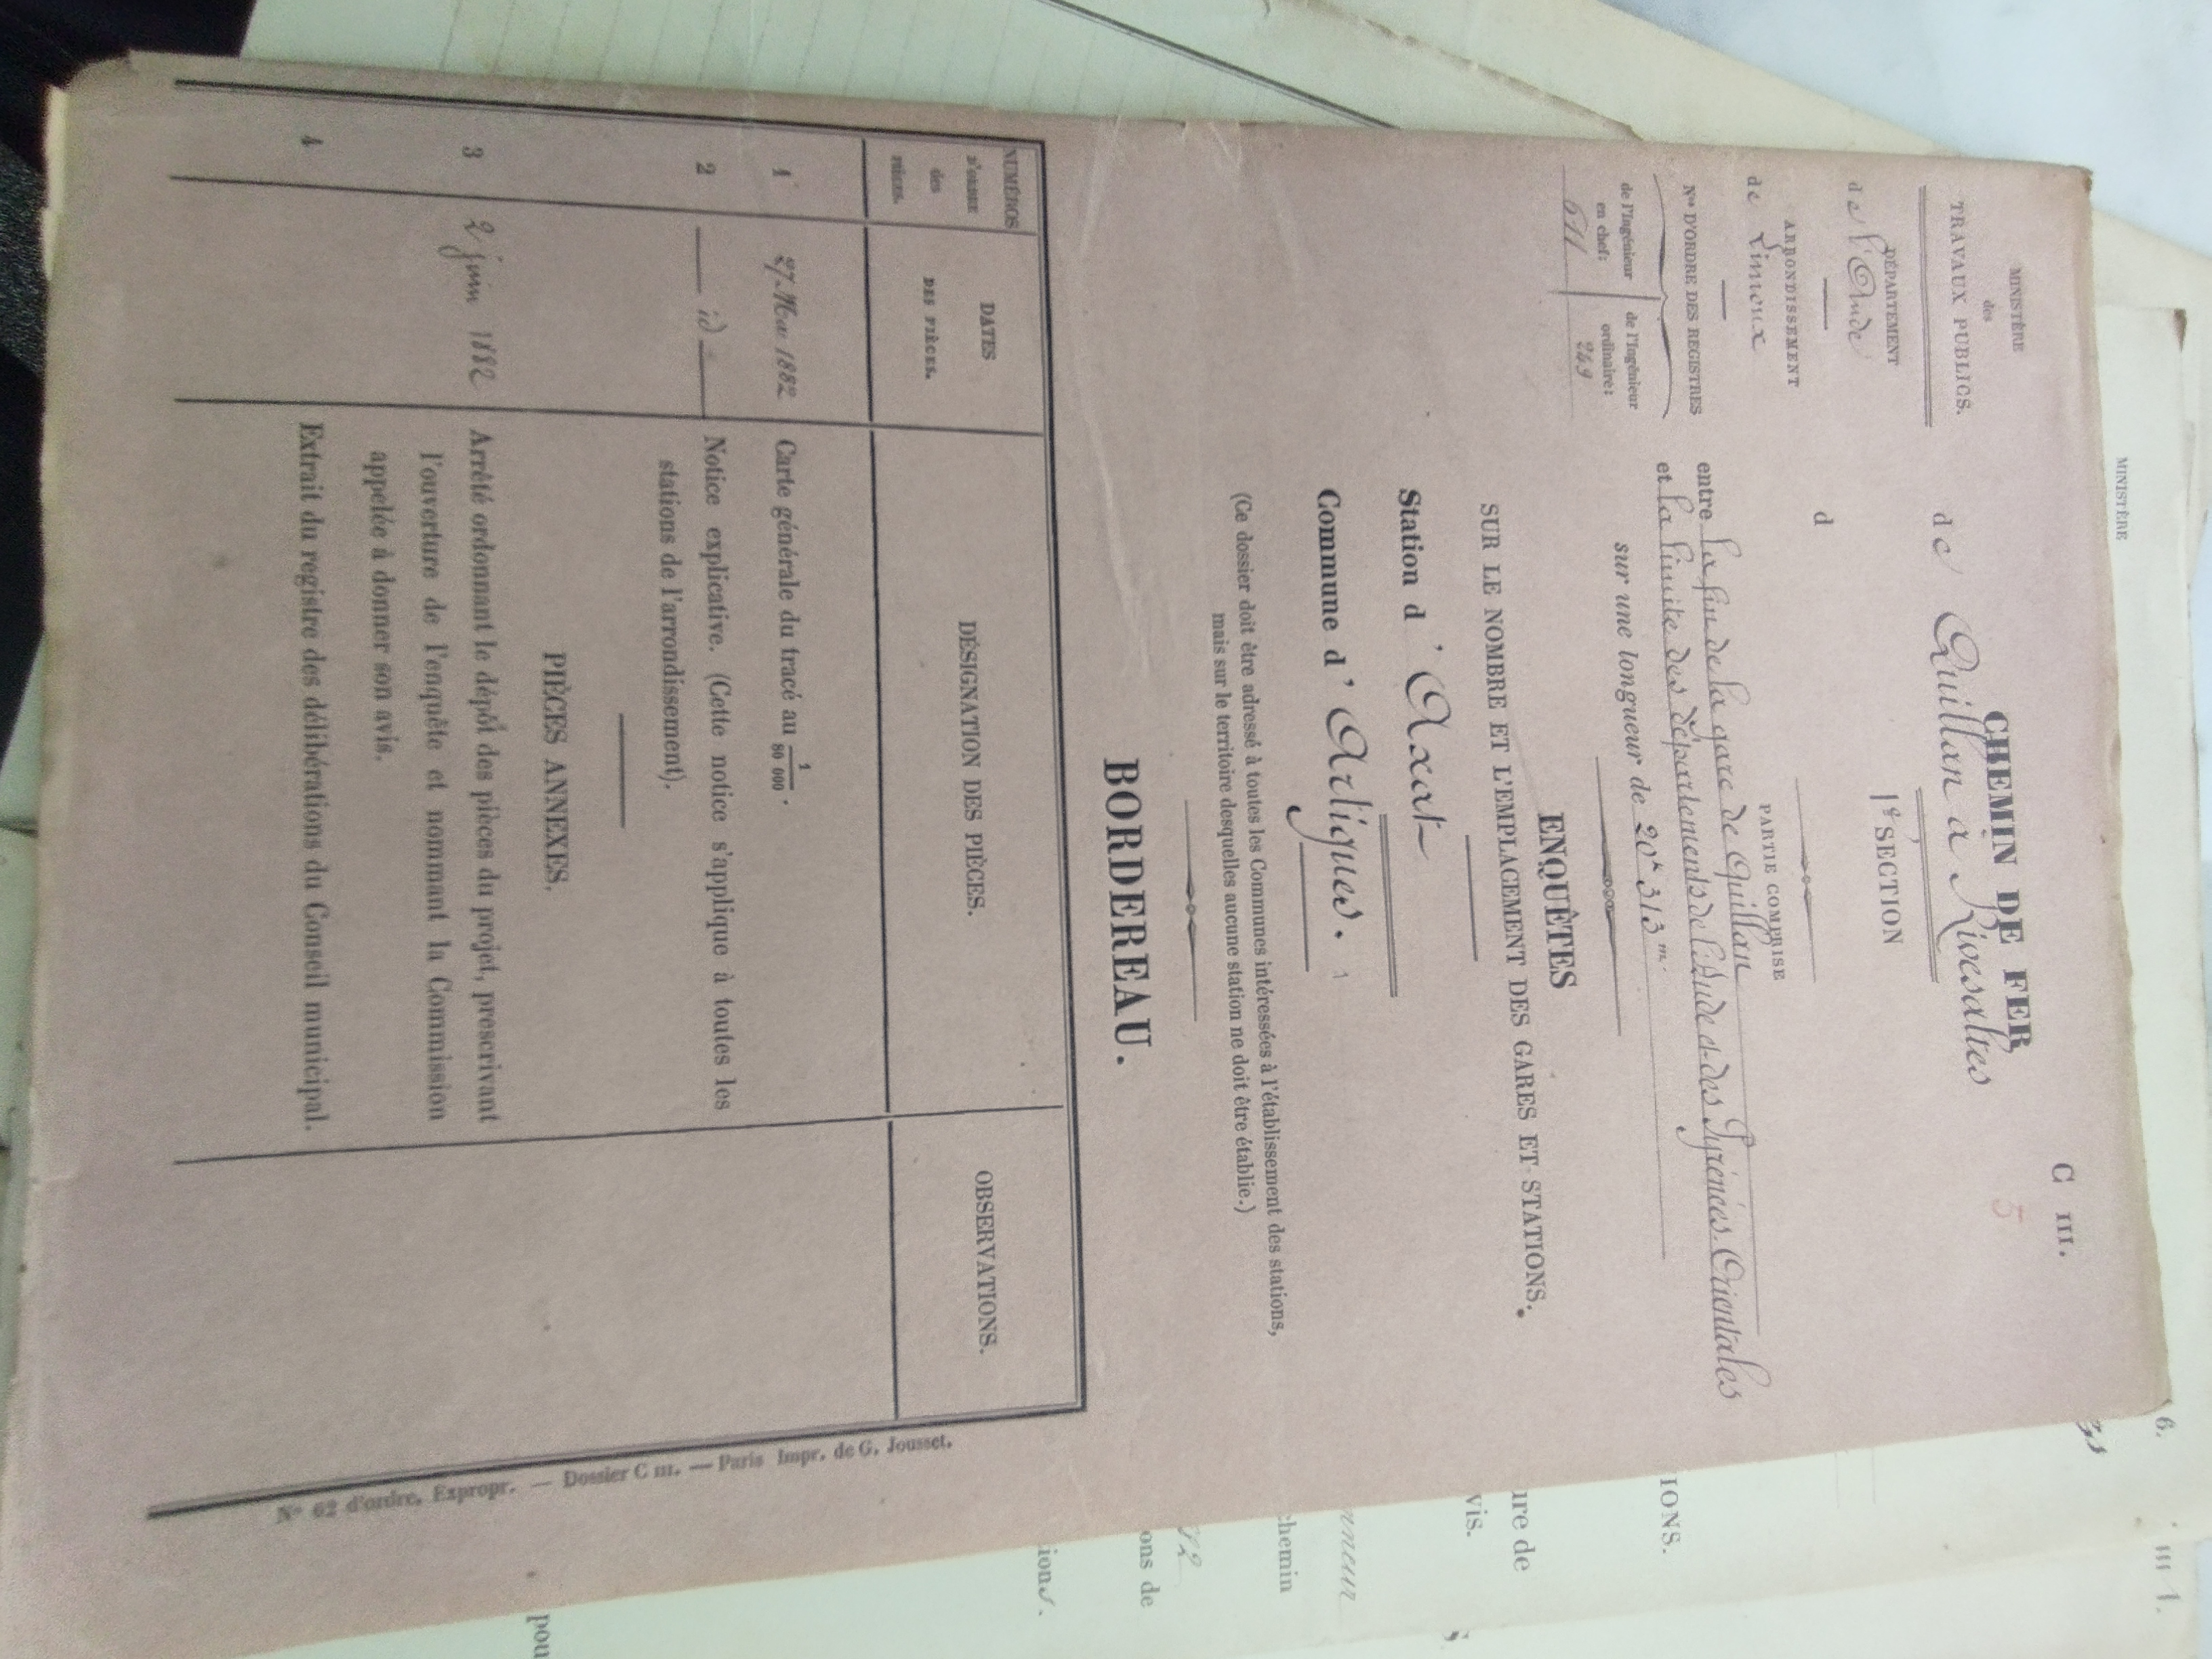 MINISTÈRE
6.
III 1.
C III.
5
MINISTÈRE
des
TRAVAUX PUBLICS.
DÉPARTEMENT
de l'Aude
ARRONDISSEMENT
de Limoux
Nos D'ORDRE DES REGISTRES
de l'Ingénieur
en chef:
611
de l'Ingénieur
ordinaire:
249
CHEMIN DE FER
de Quillan à Rivesaltes
1e SECTION
d
PARTIE COMPRISE
entre la fin de la gare de Quillan
et la limite des départements de l'Aude et des Pyrénées-Orientales
sur une longueur de 20k 313m.
ENQUÊTES
SUR LE NOMBRE ET L'EMPLACEMENT DES GARES ET STATIONS.
Station d'Axat
Commune d'Artigues.
(Ce dossier doit être adressé à toutes les Communes intéressées à l'établissement des stations,
mais sur le territoire desquelles aucune station ne doit être établie.)
BORDEREAU.
NUMÉROS
D'ORDRE
des
PIÈCES.
DATES
DES PIÈCES.
DÉSIGNATION DES PIÈCES.
OBSERVATIONS.
1 27 Mai 1882 Carte générale du tracé au 1/80 000.
2 — id — Notice explicative. (Cette notice s'applique à toutes les
stations de l'arrondissement).
PIÈCES ANNEXES.
3 2 juin 1882 Arrêté ordonnant le dépôt des pièces du projet, prescrivant
l'ouverture de l'enquête et nommant la Commission
appelée à donner son avis.
4 Extrait du registre des délibérations du Conseil municipal.
N° 62 d'ordre. Expropr. — Dossier C III. — Paris Impr. de G. Jousset.
IONS.
ure de
vis.
nneur
chemin
82
ons de
ions.
pou